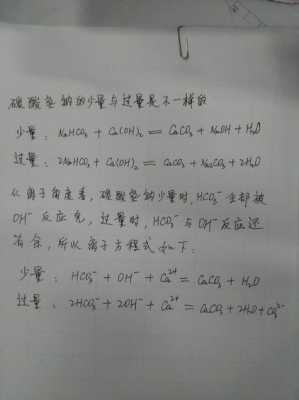 碳酸氢钠的少量与过量是不一样的
少量：NaHCO₃ + Ca(OH)₂ = CaCO₃ + NaOH + H₂O
过量：2NaHCO₃ + Ca(OH)₂ = CaCO₃ + Na₂CO₃ + 2H₂O
从离子角度看，碳酸氢钠少量时，HCO₃⁻全部被
OH⁻反应完，过量时，HCO₃⁻与OH⁻反应还
有余，所以离子方程式如下：
少量：HCO₃⁻ + OH⁻ + Ca²⁺ = CaCO₃ + H₂O
过量：2HCO₃⁻ + 2OH⁻ + Ca²⁺ = CaCO₃ + 2H₂O + CO₃²⁻